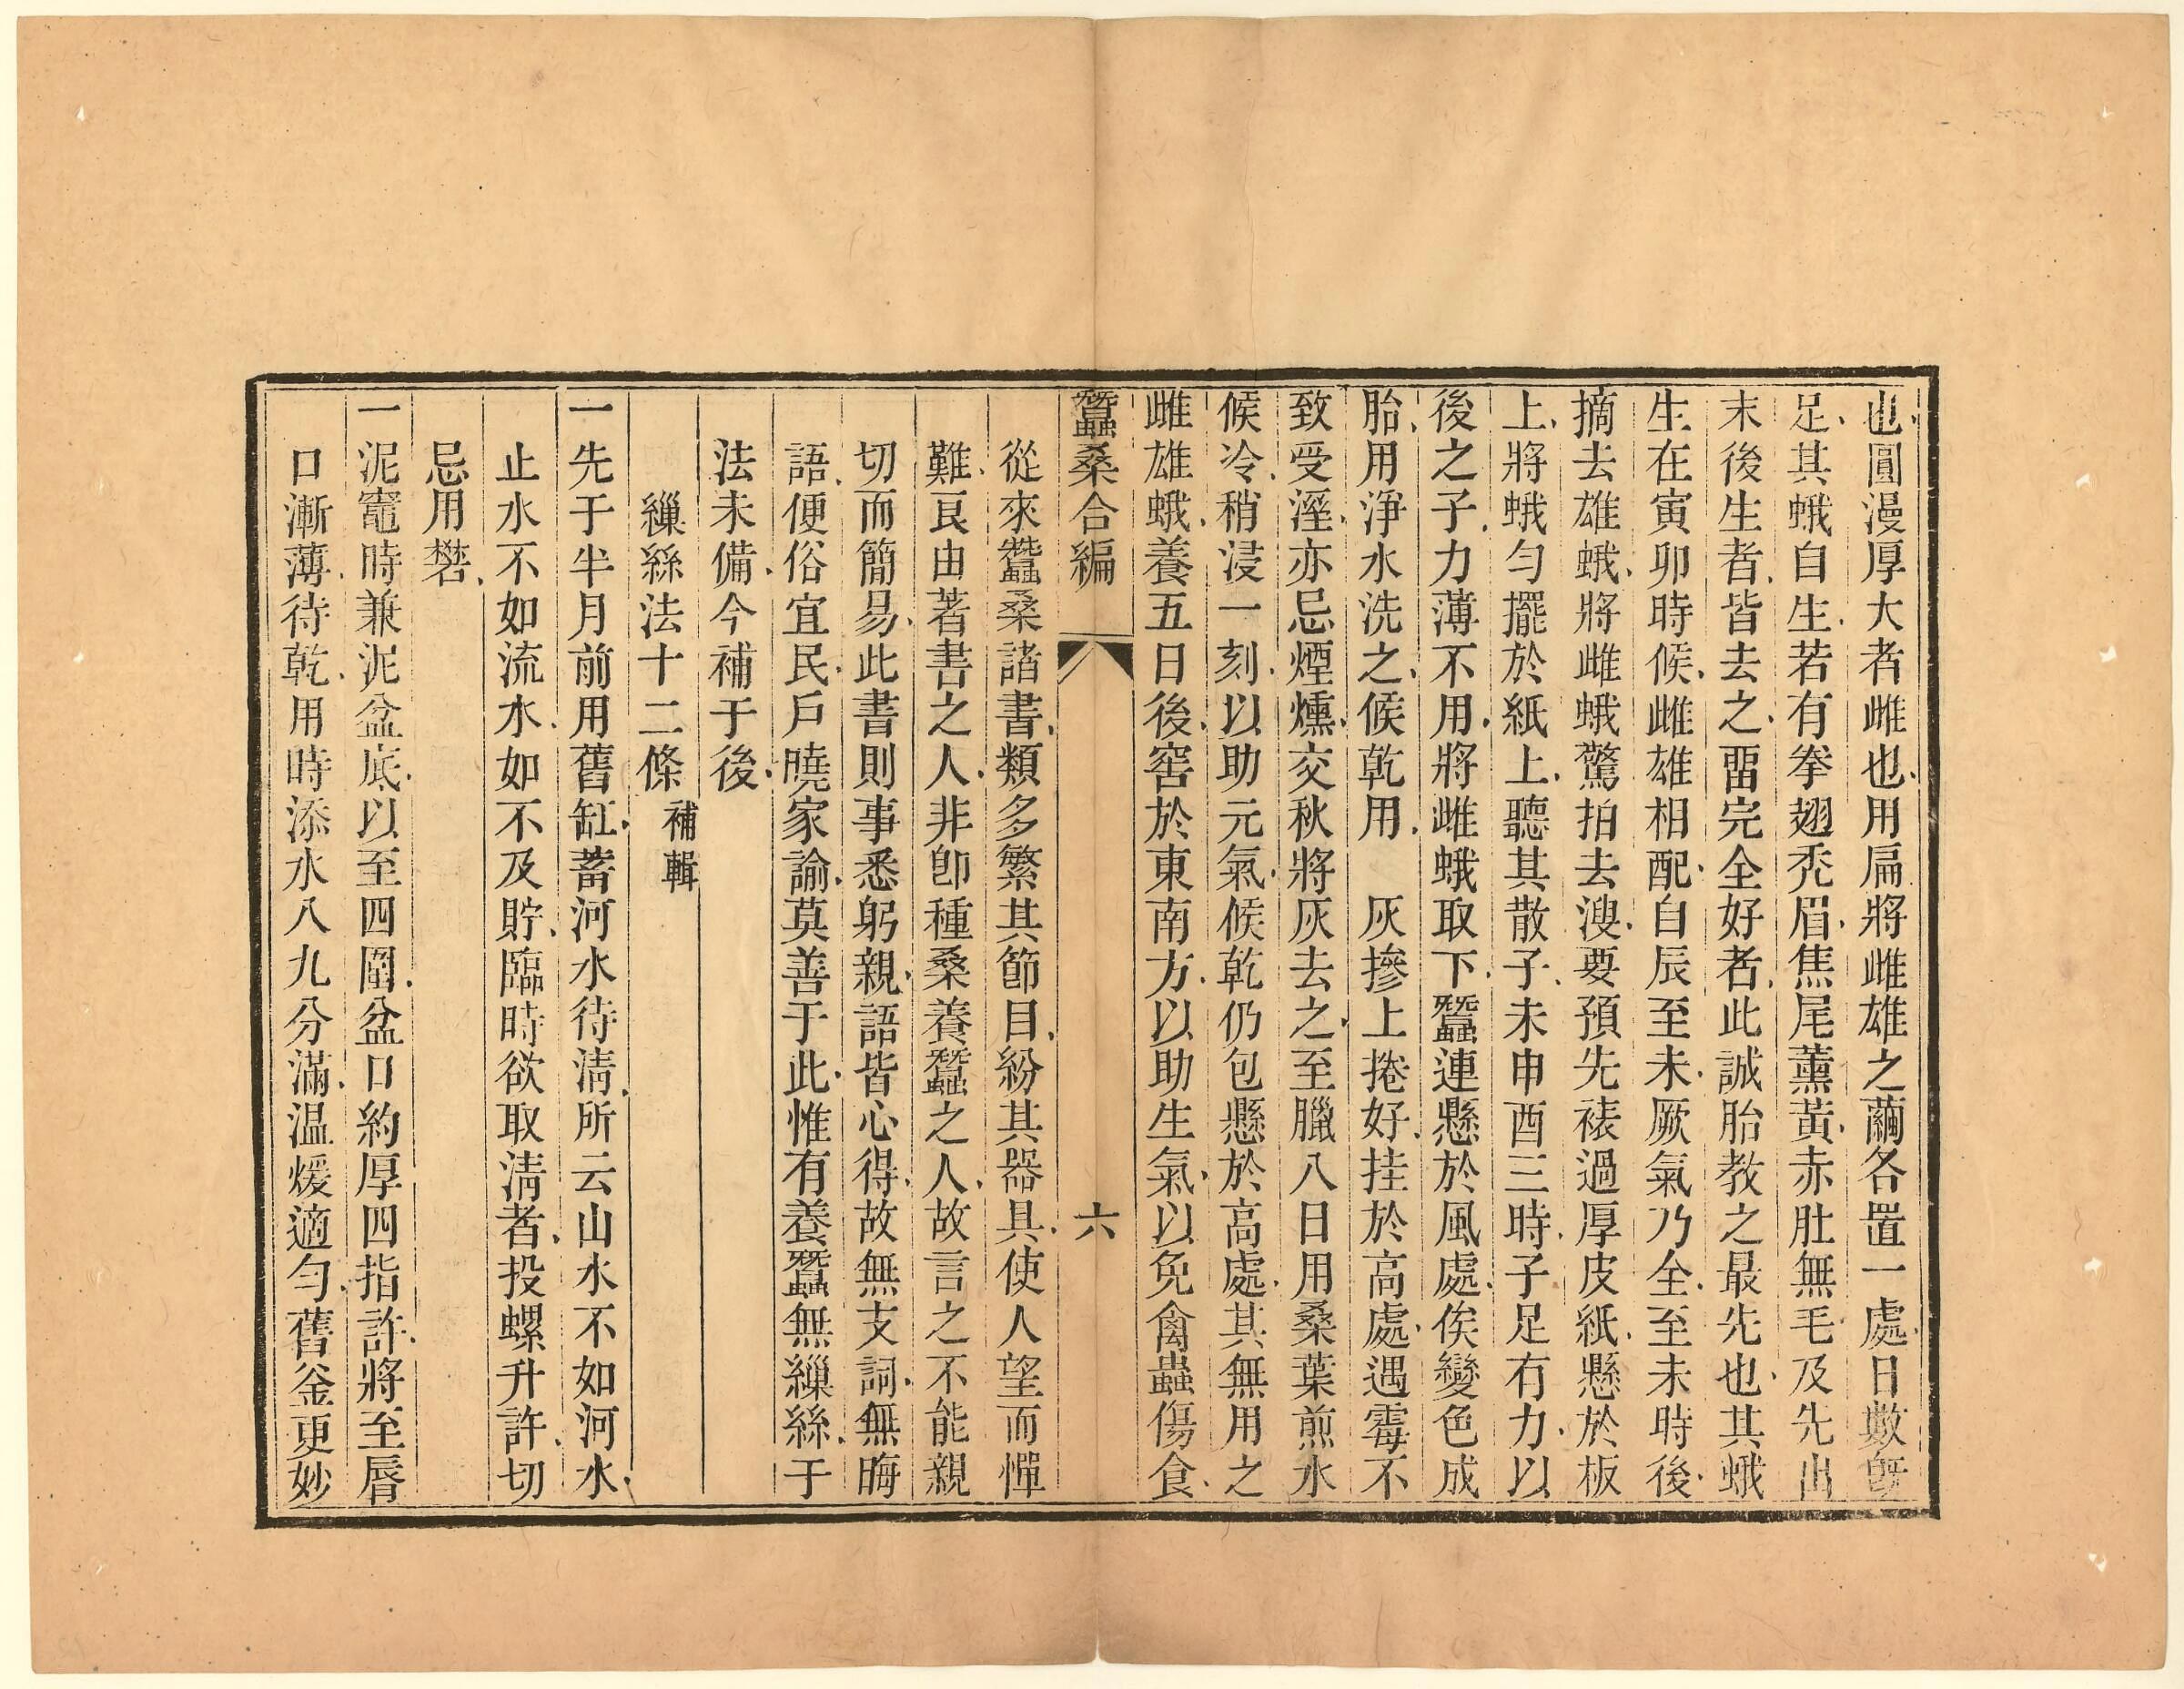 也圓漫厚大者雌也用扁將雌雄之繭各置一處日數旣
足其蛾自生若有拳翅禿眉焦尾薰黃赤肚無毛及先出
末後生者皆去之畱完全好者此誠胎教之最先也其蛾
生在寅卯時候雌雄相配自辰至未厥氣乃全至未時後
摘去雄蛾將雌蛾驚拍去溲要預先裱過厚皮紙懸於板
上將蛾勻擺於紙上聽其散子未申酉三時子足有力以
後之子力薄不用將雌蛾取下蠶連懸於風處俟變色成
胎用淨水洗之候乾用 灰摻上捲好挂於高處遇霉不
致受溼亦忌煙燻交秋將灰去之至臘八日用桑葉煎水
候冷稍浸一刻以助元氣候乾仍包懸於高處其無用之
雌雄蛾養五日後窖於東南方以助生氣以免禽蟲傷食
蠶桑合編 六
從來蠶桑諸書類多繁其節目紛其器具使人望而憚
難良由著書之人非卽種桑養蠶之人故言之不能親
切而簡易此書則事悉躬親語皆心得故無支詞無晦
語便俗宜民戶曉家諭莫善于此惟有養蠶無繅絲于
法未備今補于後
繅絲法十二條 補輯
一先于半月前用舊缸蓄河水待淸所云山水不如河水
止水不如流水如不及貯臨時欲取淸者投螺升許切
忌用礬
一泥竈時兼泥盆底以至四圍盆口約厚四指許將至脣
口漸薄待乾用時添水八九分滿温煖適勻舊釜更妙